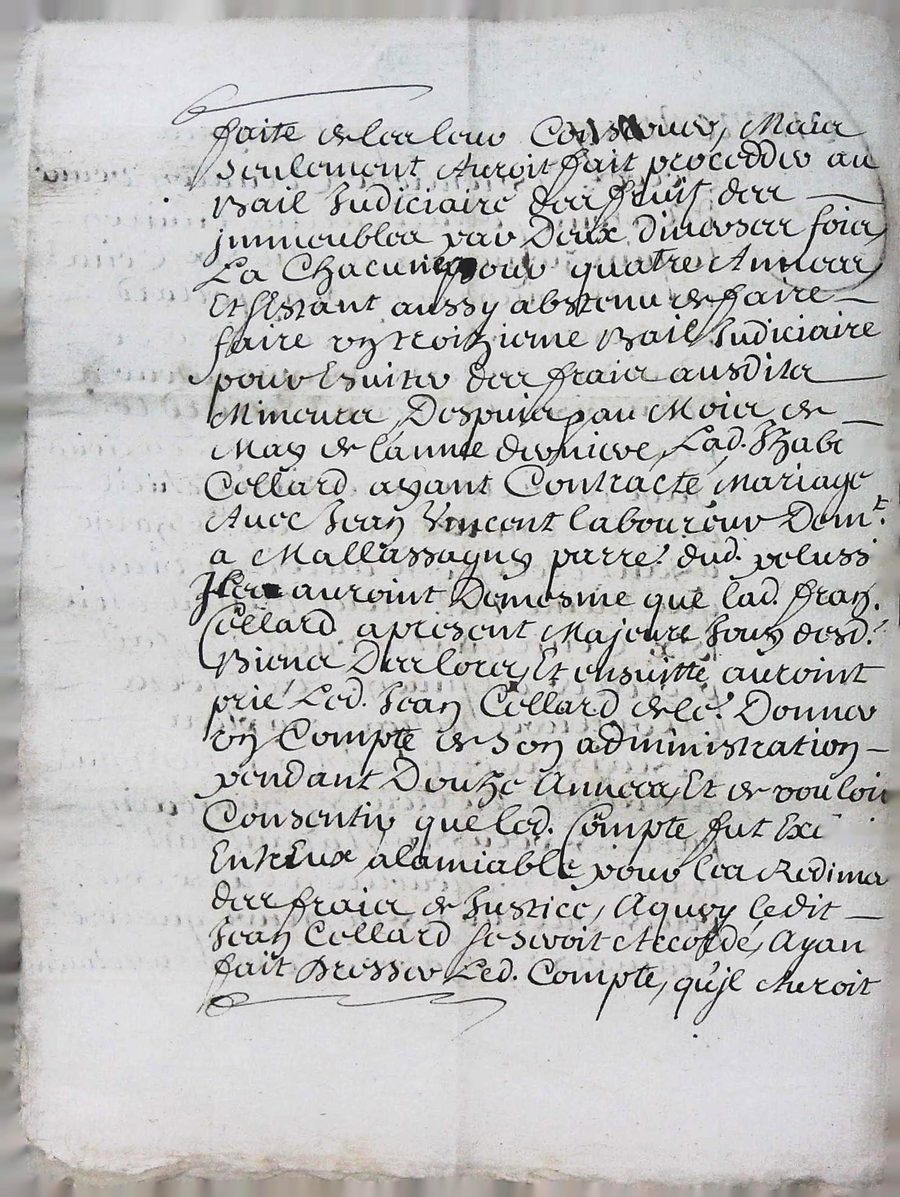 faite de la leur Conserver, Mais
Seulement Auroit fait procedder au
Bail Judiciaire des fruits des
jmmeubles par Deux diverses fois,
La Chacune pour quatre Années
Et sestant aussy abstenu de faire
faire vn troizieme Bail Judiciaire
pour Esuiter des frais ausdits
Mineurs, Despuis au Mois de
May de l'année derniere, Lad. Yzabe
Cellard ayant Contracte Mariage
Auec Jean Vincent laboureur Dem.t
a Mallassagny parre. dud. pelussi
Jls auroint Demesme que lad. fran.
Cellard apresent Majeure Jouy desd.
Biens Des lors, Et ensuitte auroint
prié Led. Jean Cellard de le. Donner
vn Compte de Son administration
pendant Douze Années, Et de vouloir
Consentir que led. Compte fut Exe
EntrEux alamiable pour les Redimer
des frais de Justice, Aquoy ledit
Jean Cellard seseroit Accordé, Ayan
fait Dresser Led. Compte, qu'jl Auroit